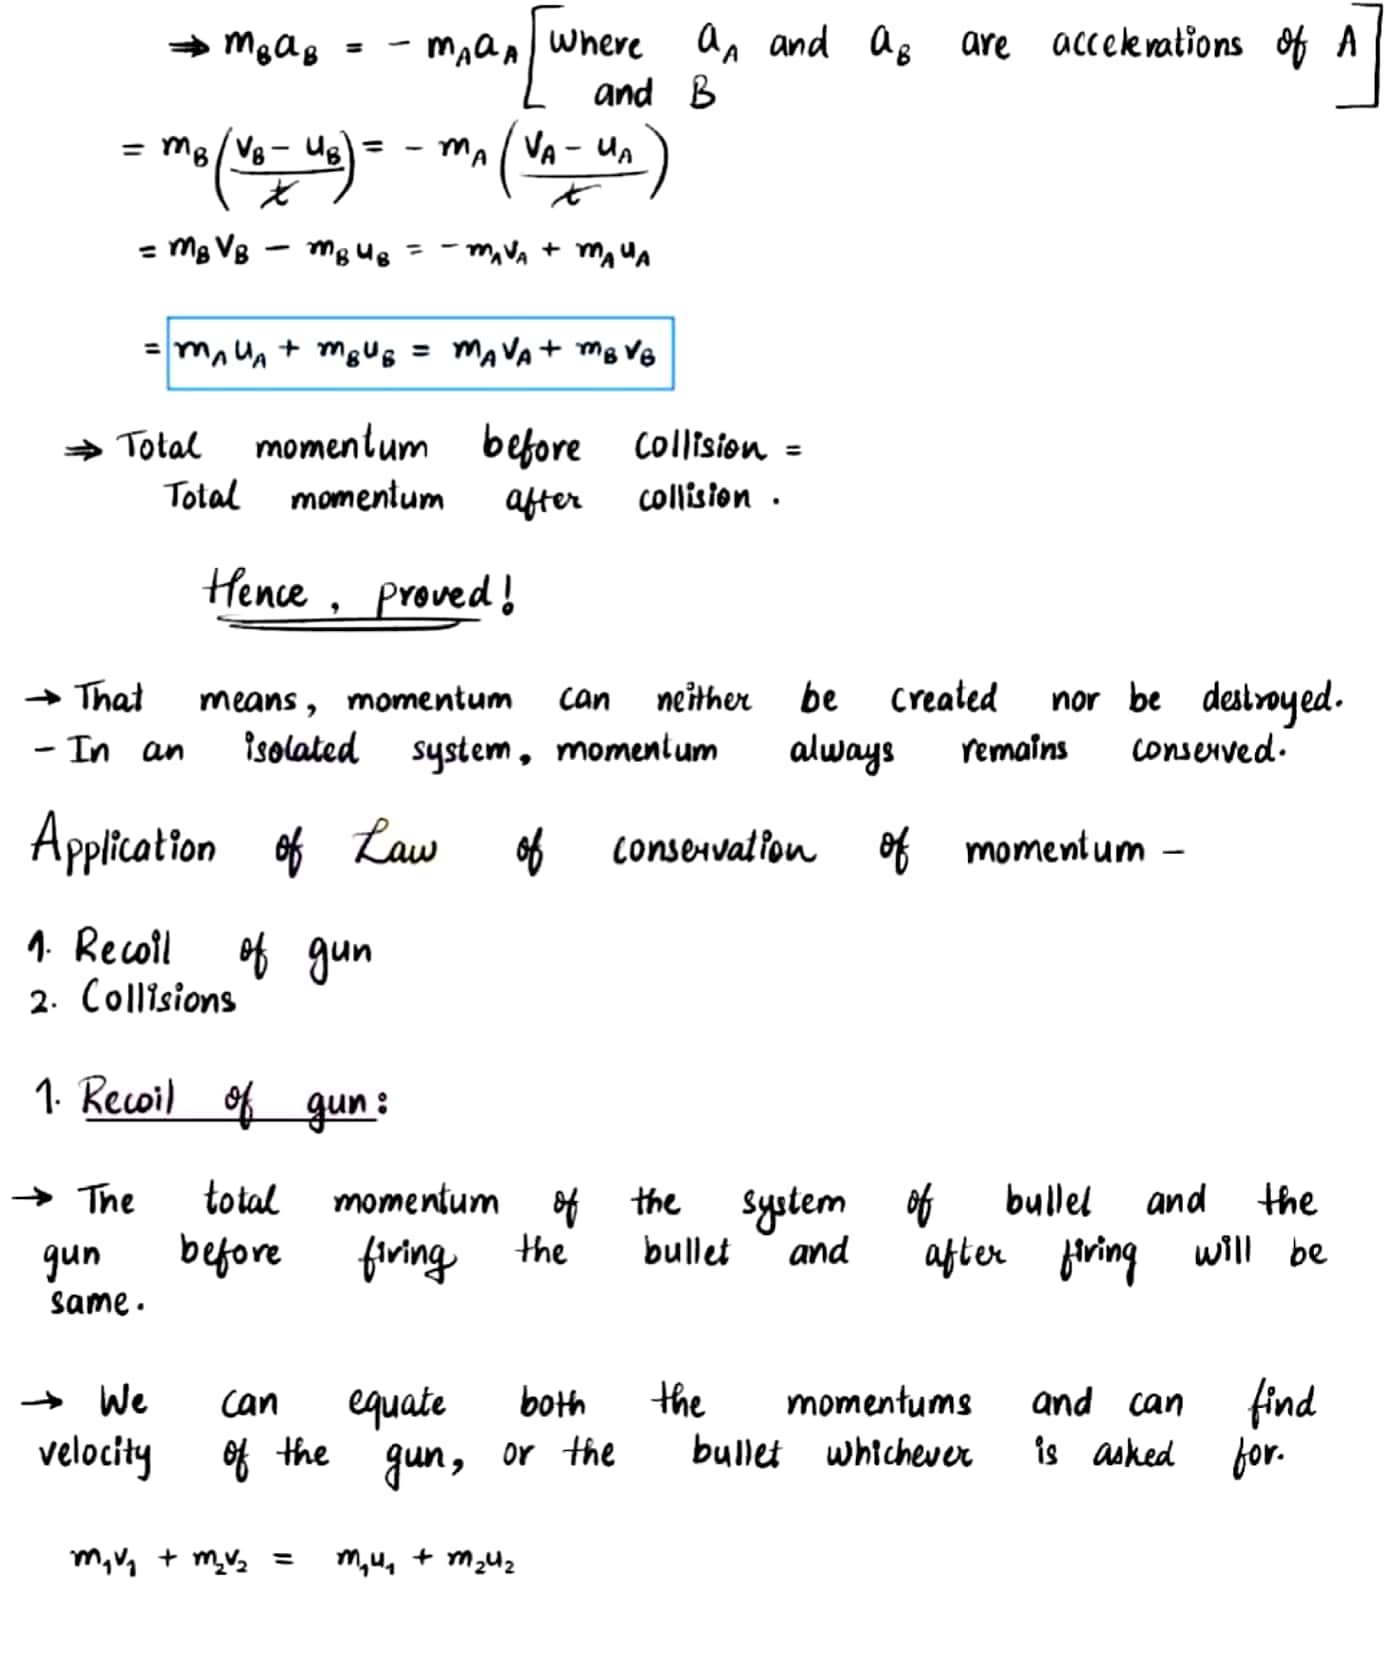 ⇒ m_B a_B = - m_A a_A [where a_A and a_B are accelerations of A
and B]
= m_B ((v_B - u_B)/t) = - m_A ((v_A - u_A)/t)
= m_B v_B - m_B u_B = - m_A v_A + m_A u_A
= m_A u_A + m_B u_B = m_A v_A + m_B v_B
⇒ Total momentum before collision =
Total momentum after collision .
Hence, proved!
→ That means, momentum can neither be created nor be destroyed.
- In an isolated system, momentum always remains conserved.
Application of Law of conservation of momentum -
1. Recoil of gun
2. Collisions
1. Recoil of gun:
→ The total momentum of the system of bullet and the
gun before firing the bullet and after firing will be
same.
→ We can equate both the momentums and can find
velocity of the gun, or the bullet whichever is asked for.
m₁v₁ + m₂v₂ = m₁u₁ + m₂u₂